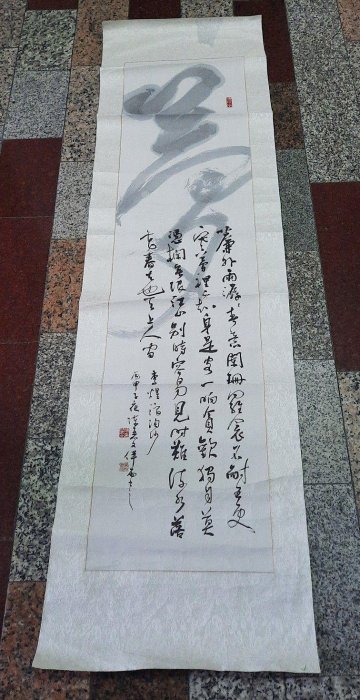 夢
簾外雨潺潺春意闌珊羅衾不耐五更
寒夢裡不知身是客一晌貪歡獨自莫
憑欄無限江山別時容易見時難流水落
花春去也天上人間 李煜浪淘沙